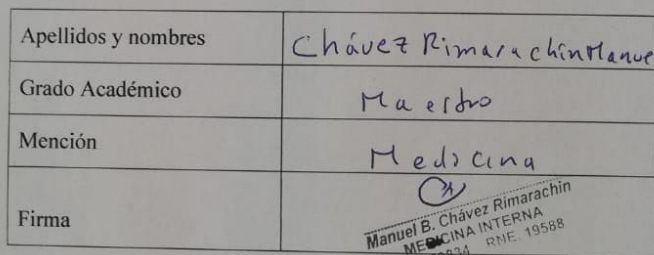 Apellidos y nombres Chávez Rimarachin Manue
Grado Académico Maestro
Mención Medicina
Firma
Manuel B. Chávez Rimarachin
MEDICINA INTERNA
RNE. 19588